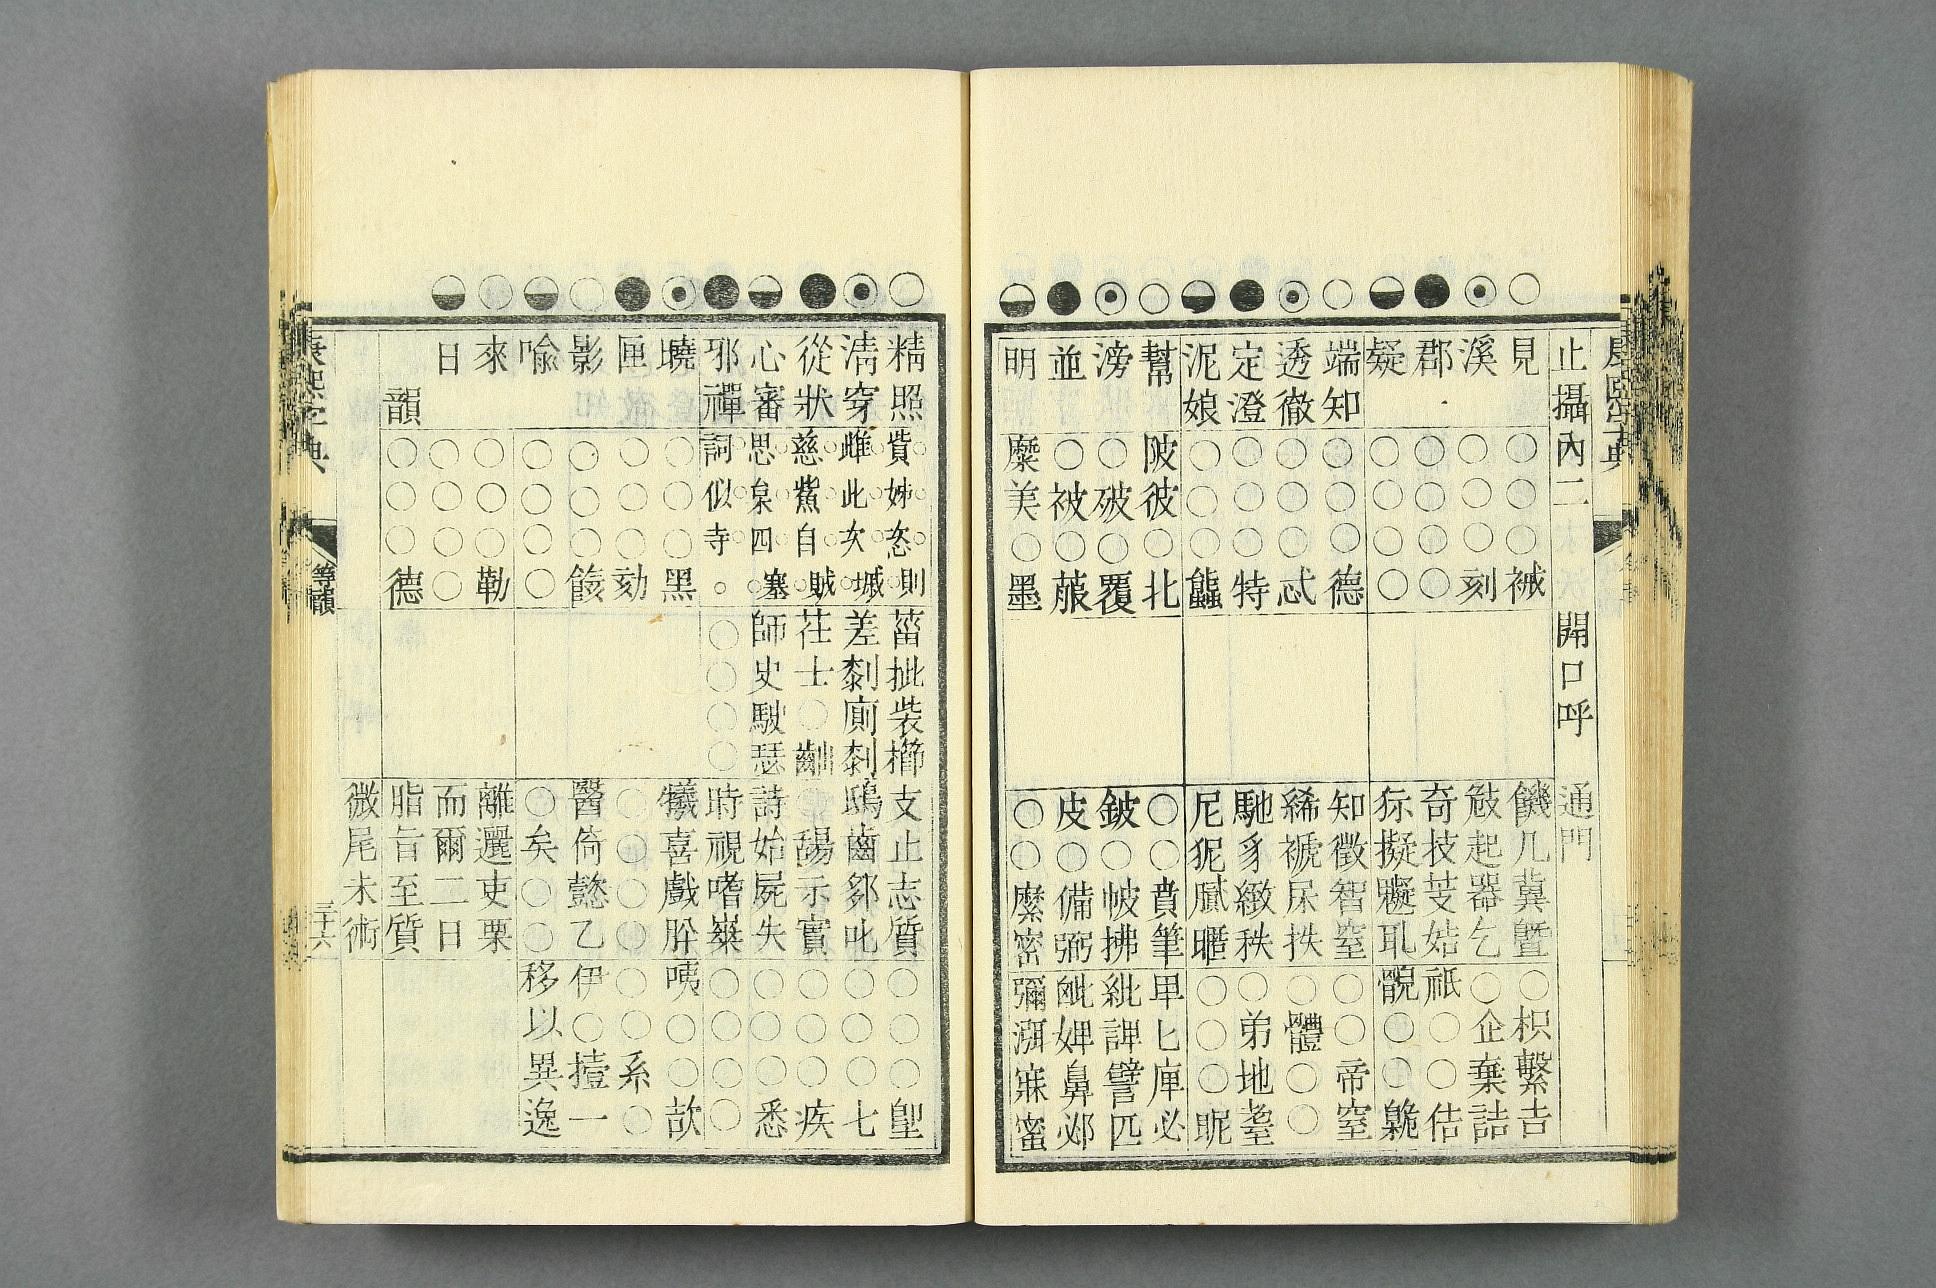 止攝內二 開口呼 通門
見 ○○○祴 饑几冀暨 ○枳繫吉
溪 ○○○刻 㩻起器乞 ○企棄詰
郡 ○○○○ 奇技芰姞 祇○○佶
疑 ○○○○ 狋擬劓耴 ○○
端知 ○○○德 知徵智窒 ○○帝窒
透徹 ○○○忒 絺褫尿抶 ○體○○
定澄 ○○○特 馳豸緻秩 ○弟地耋
泥娘 ○○○䘌 尼狔膩暱 ○○○昵
幫 陂彼○北 ○○賁筆 卑匕庳必
滂 ○破○覆 鈹○帔拂 紕諀譬匹
並 ○被○菔 皮○備弼 毗婢鼻邲
明 糜美○墨 ○○縻密 彌渳寐蜜
精照 貲姊恣則 菑批裝櫛 支止志質 ○○○堲
清穿 雌此次墄 差剺廁剎 鴟齒䣛叱 ○○○七
從狀 慈紫自賊 茌士○齜 舓示實 ○○○疾
心審 思枲四塞 師史駛瑟 詩始屍失 ○○○悉
邪禪 詞似寺○ ○○○○ 時視嗜 ○○○○
曉 ○○○黑 犧喜戲肸 咦○○欯
匣 ○○○劾 ○○○○ ○○系○
影 ○○○餩 醫倚懿乙 伊○撎一
喻 ○○○○ ○矣○○ 移以異逸
來 ○○○勒 離邐吏栗
日 ○○○○ 而爾二日
韻 ○○○德 脂旨至質
微尾未術
康熙字典 等韻 三十六